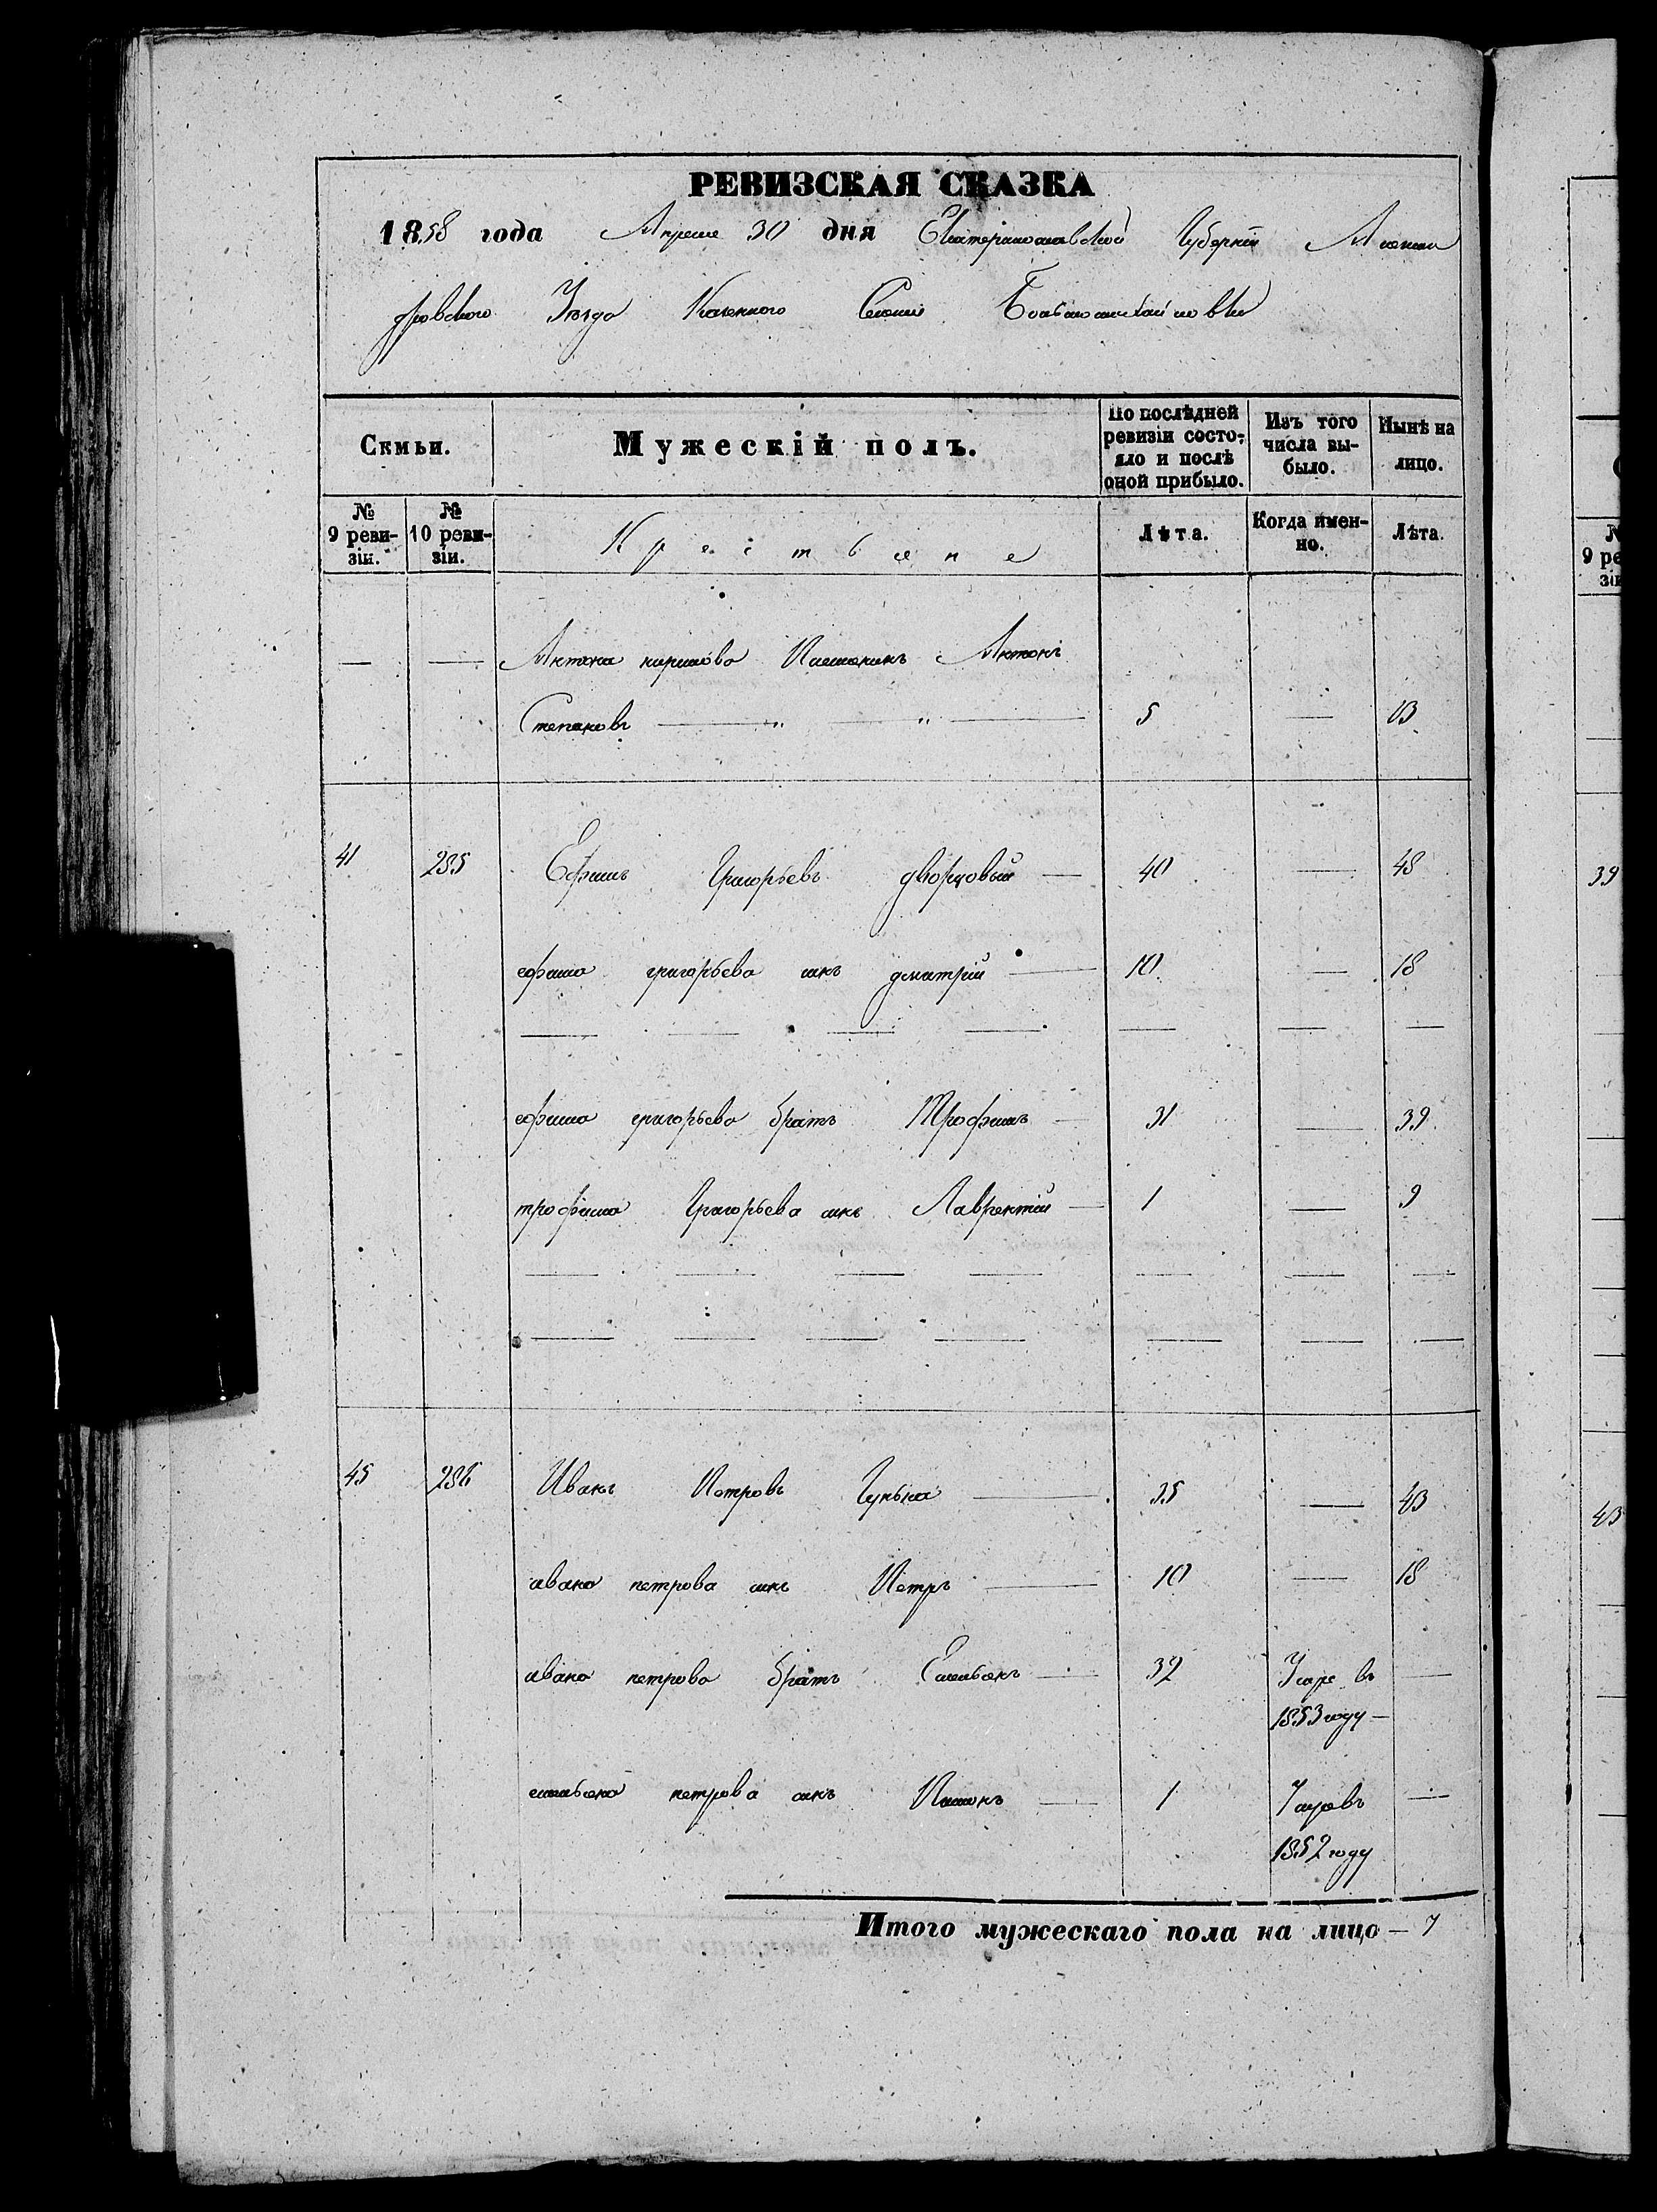 РЕВИЗСКАЯ СКАЗКА
1858 года Апреля 30 дня Екатеринославской Губерніи Алексан
дровского Уезда Казенного Селенія
Семьи. Мужескій полъ. По послѣдней ревизіи состояло и послѣ оной прибыло. Изъ того числа выбыло. Нынѣ на лицо.
№ 9 ревизіи. № 10 ревизіи. Крестьяне Лѣта. Когда именно. Лѣта.
— — Антона Племяникъ Антонъ
Степановъ — " — " — 5 — 13
41 285 Ефимъ Григорьевъ дворцовый — 40 — 48
ефима григорьева сынъ дмитрій — 10 — 18
ефима григорьева братъ Трофимъ — 31 — 39
трофима Григорьева сынъ Лаврентій — 1 — 9
45 286 Иванъ Петровъ Гунька — 35 — 43
ивана петрова сынъ Петръ — 10 — 18
ивана петрова братъ Емельянъ — 32 Умре въ —
1853 году —
емельяна петрова сынъ — 1 Умре въ —
1852 году
Итого мужескаго пола на лицо — 7
№
9 ре
зі
39
43